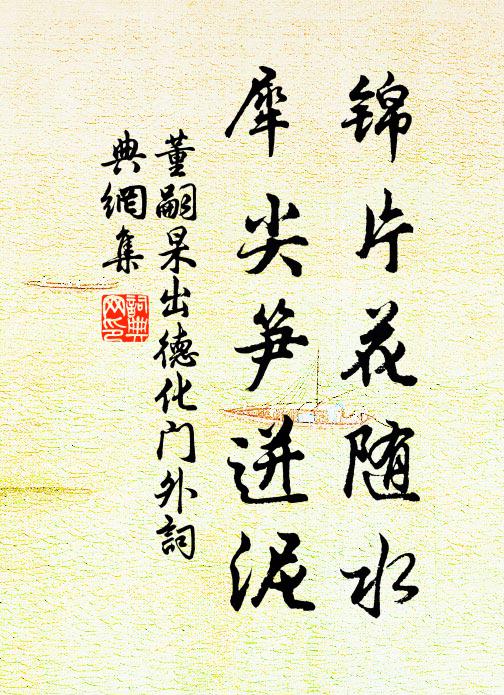 锦片花随水
犀尖笋迸泥
董嗣杲出德化门外詞
典網集
詞典
网印